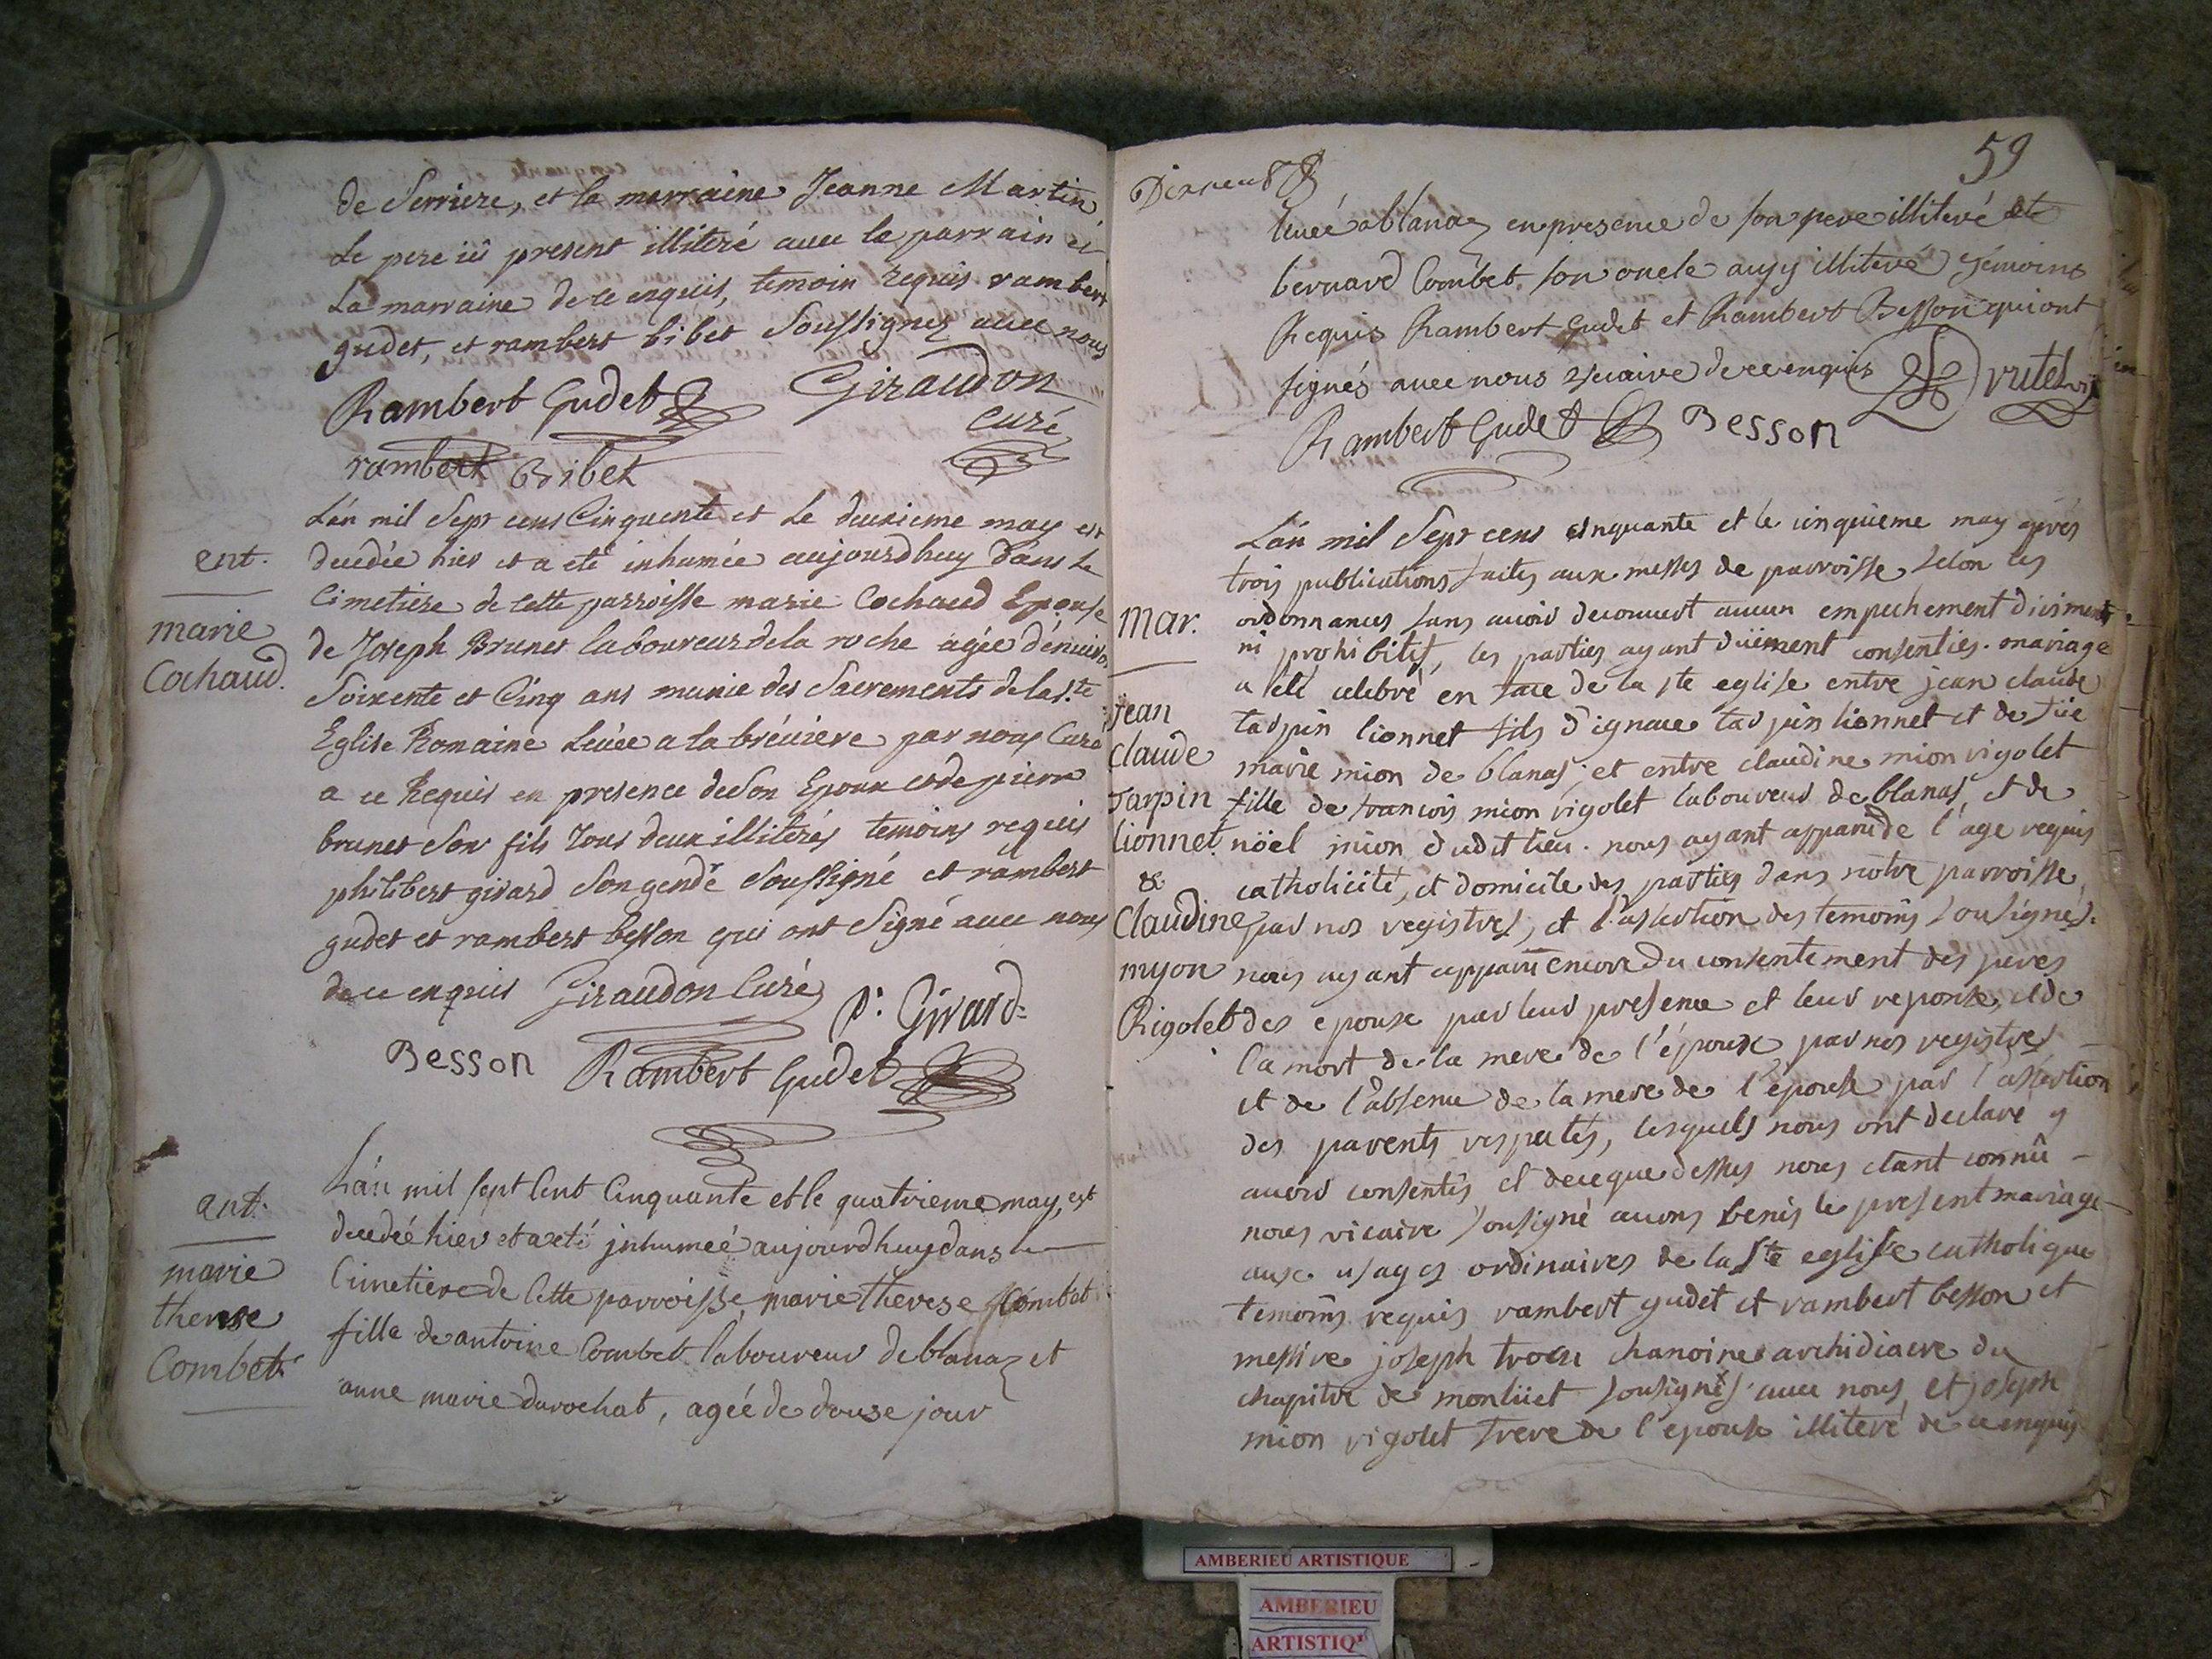 de Serriere, et la marraine Jeanne Martin
Le pere ici present illiteré avec le parrain et
La marraine de ce enquis, temoin requis rambert
gudet, et rambert bibet Soussignez avec nous
Rambert Gudet Giraudon
curé
rambert Bibet
ent.
marie
Cochaud.
L'an mil Sept cens Cinquente et Le deuxieme may est
decedée hier et a eté inhumée aujourdhuy dans Le
Cimetiere de cette parroisse marie Cochaud Epouse
de Joseph Brunet laboureur de la roche agée d'environ
Soixente et Cinq ans munie des Sacrements de la Ste
Eglise Romaine Levée a la bréviere par nous Curé
a ce Requis en presence de Son Epoux et de pierre
brunet Son fils Tous deux illiterés temoins requis
philibert girard Son gendr̃e Soussigné et rambert
gudet et rambert besson qui ont Signé avec nous
de ce enquis Giraudon Curé
p: Girard
Besson Rambert Gudet
ent.
marie
therese
Combet
L'an mil sept Cent Cinquante et le quatrieme may, est
decedeé hier et a eté jnhumeé aujourdhuy dans le
Cimetiere de Cette parroisse marie therese Combet
fille de antoine Combet laboureur de blanaz et
anne marie durochat, ageé de douse jour
59
leveé a blanaz en presence de son pere illiteré et
bernard Combet son oncle aussy illiteré Temoins
Requis Rambert Gudet et Rambert Besson qui ont
signés avec nous vicaire de ce enquis
Rambert Gudet Besson
mar.
Jean
Claude
Tarpin
Lionnet
&
Claudine
myon
Rigolet
L'an mil Sept cens cinquante et le cinquieme may aprés
trois publications faites aux messes de parroisse selon les
ordonnances sans avoir decouvert aucun empechement diriment
ni prohibitif, les parties ayant düement consenties. mariage
a été celebré en face de la ste eglise entre jean claude
tarpin lionnet fils d'ignace tarpin lionnet et de füe
marie mion de blanas; et entre claudine mion rigolet
fille de francois mion rigolet laboureur de blanas, et de
nöel mion dudit lieu. nous ayant apparu de l'age requis
catholicité, et domicile des parties dans notre parroisse,
par nos registres, et l'assertion des temoins sousignés.
nous ayant apparu encore du consentement des peres
des epoux par leur presence et leur reponse, et de
la mort de la mere de l'époux par nos registres
et de l'absence de la mere de l'epouse par l'assertion
des parents respectés, lesquels nous ont declaré y
avoir consentis et de ce que dessus nous etant connû
nous vicaire sousigné avons benis le present mariage
aux usages ordinaires de la Ste eglise catholique
temoins requis rambert gudet et rambert besson et
messire joseph trocu chanoine archidiacre du
chapitre de monlüet sousignés avec nous et joseph
mion rigolet frere de l'epouse illiteré de ce enquis
AMBERIEU ARTISTIQUE
AMBERIEU
ARTISTIQ